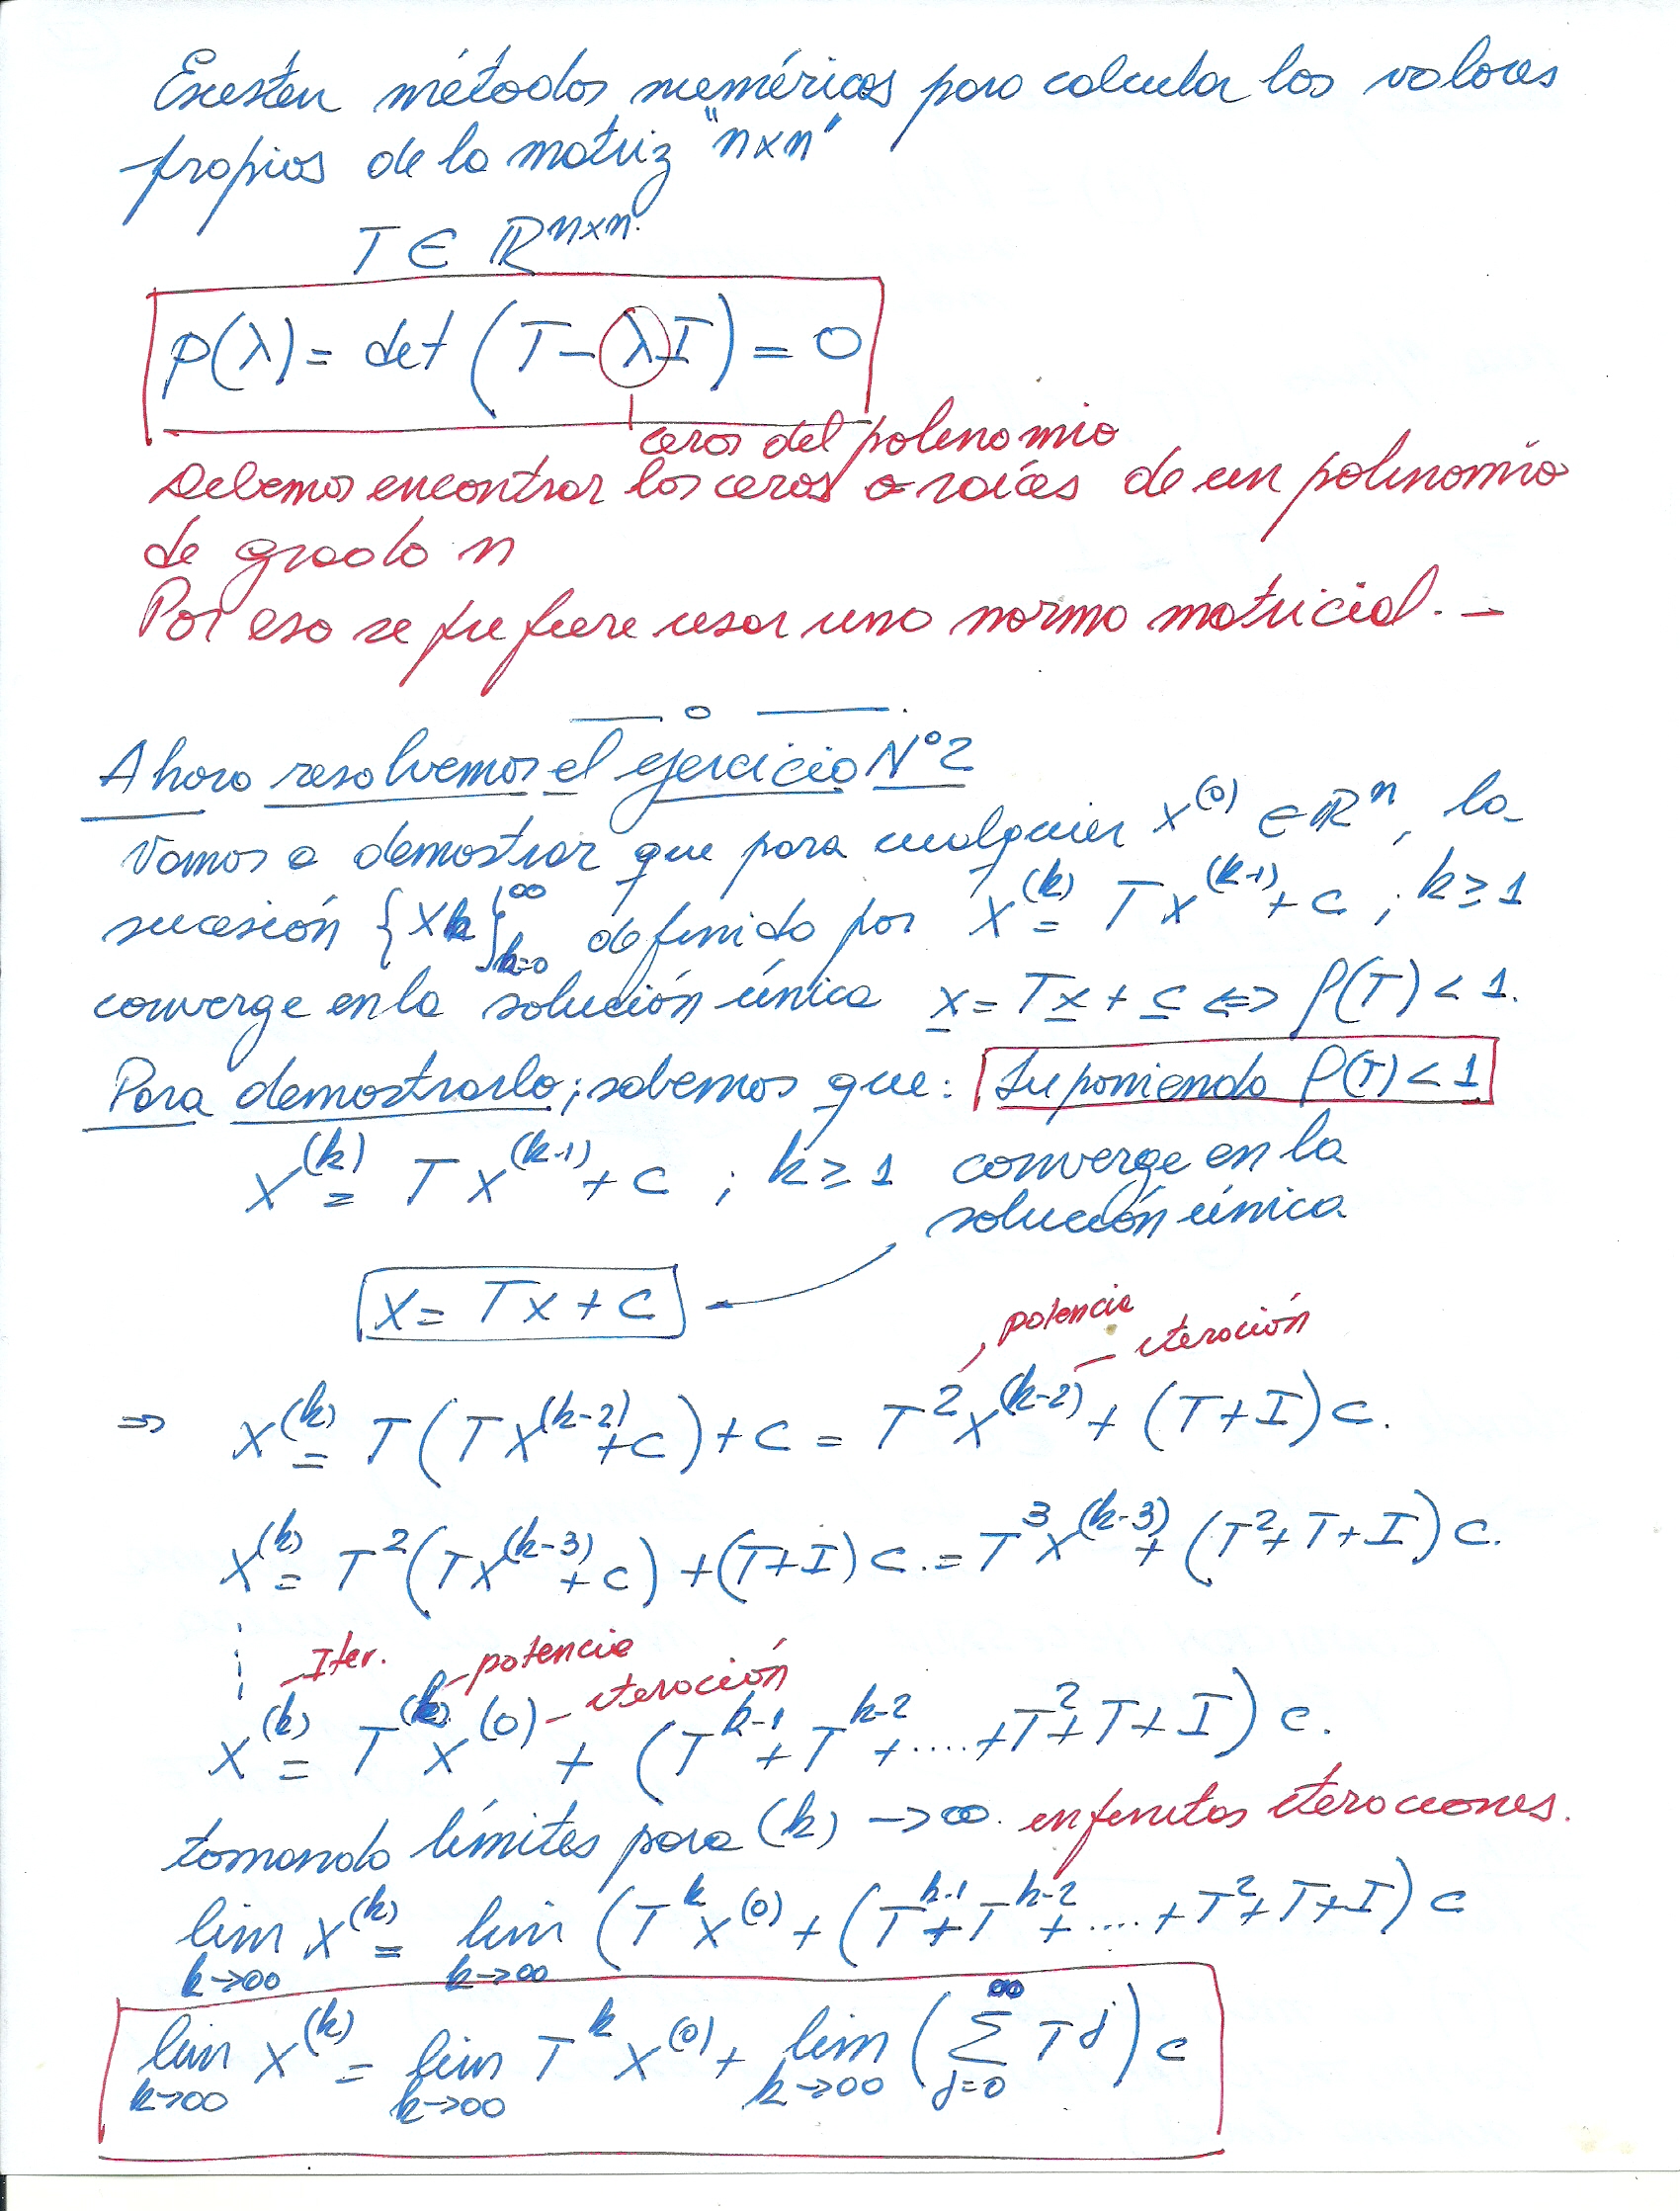 Existen métodos numéricos para calcular los valores
propios de la matriz "n×n"
T ∈ ℝ^{n×n}.
p(λ) = det (T - λI) = 0
ceros del polinomio
Debemos encontrar los ceros o raíces de un polinomio
de grado n
Por eso se prefiere usar una norma matricial. -
— o —.
Ahora resolvemos el ejercicio N°2
Vamos a demostrar que para cualquier x^{(0)} ∈ ℝ^n, la
sucesión {x_k}_{k=0}^∞ definida por x^{(k)} = T x^{(k-1)} + c ; k ≥ 1
converge en la solución única x = Tx + c ⇔ ρ(T) < 1.
Para demostrarlo; sabemos que: Suponiendo ρ(T) < 1
x^{(k)} = T x^{(k-1)} + c ; k ≥ 1 converge en la
solución única
x = Tx + c
potencia
iteración
⇒ x^{(k)} = T(T x^{(k-2)} + c) + c = T^2 x^{(k-2)} + (T + I) c.
x^{(k)} = T^2 (T x^{(k-3)} + c) + (T + I) c. = T^3 x^{(k-3)} + (T^2 + T + I) c.
Iter. potencia
iteración
x^{(k)} = T^{(k)} x^{(0)} + (T^{k-1} + T^{k-2} + .... + T^2 + T + I) c.
tomando límites para (k) → ∞. infinitas iteraciones.
lim_{k→∞} x^{(k)} = lim_{k→∞} (T^k x^{(0)} + (T^{k-1} + T^{k-2} + .... + T^2 + T + I) c
lim_{k→∞} x^{(k)} = lim_{k→∞} T^k x^{(0)} + lim_{k→∞} (∑_{j=0}^∞ T^j) c